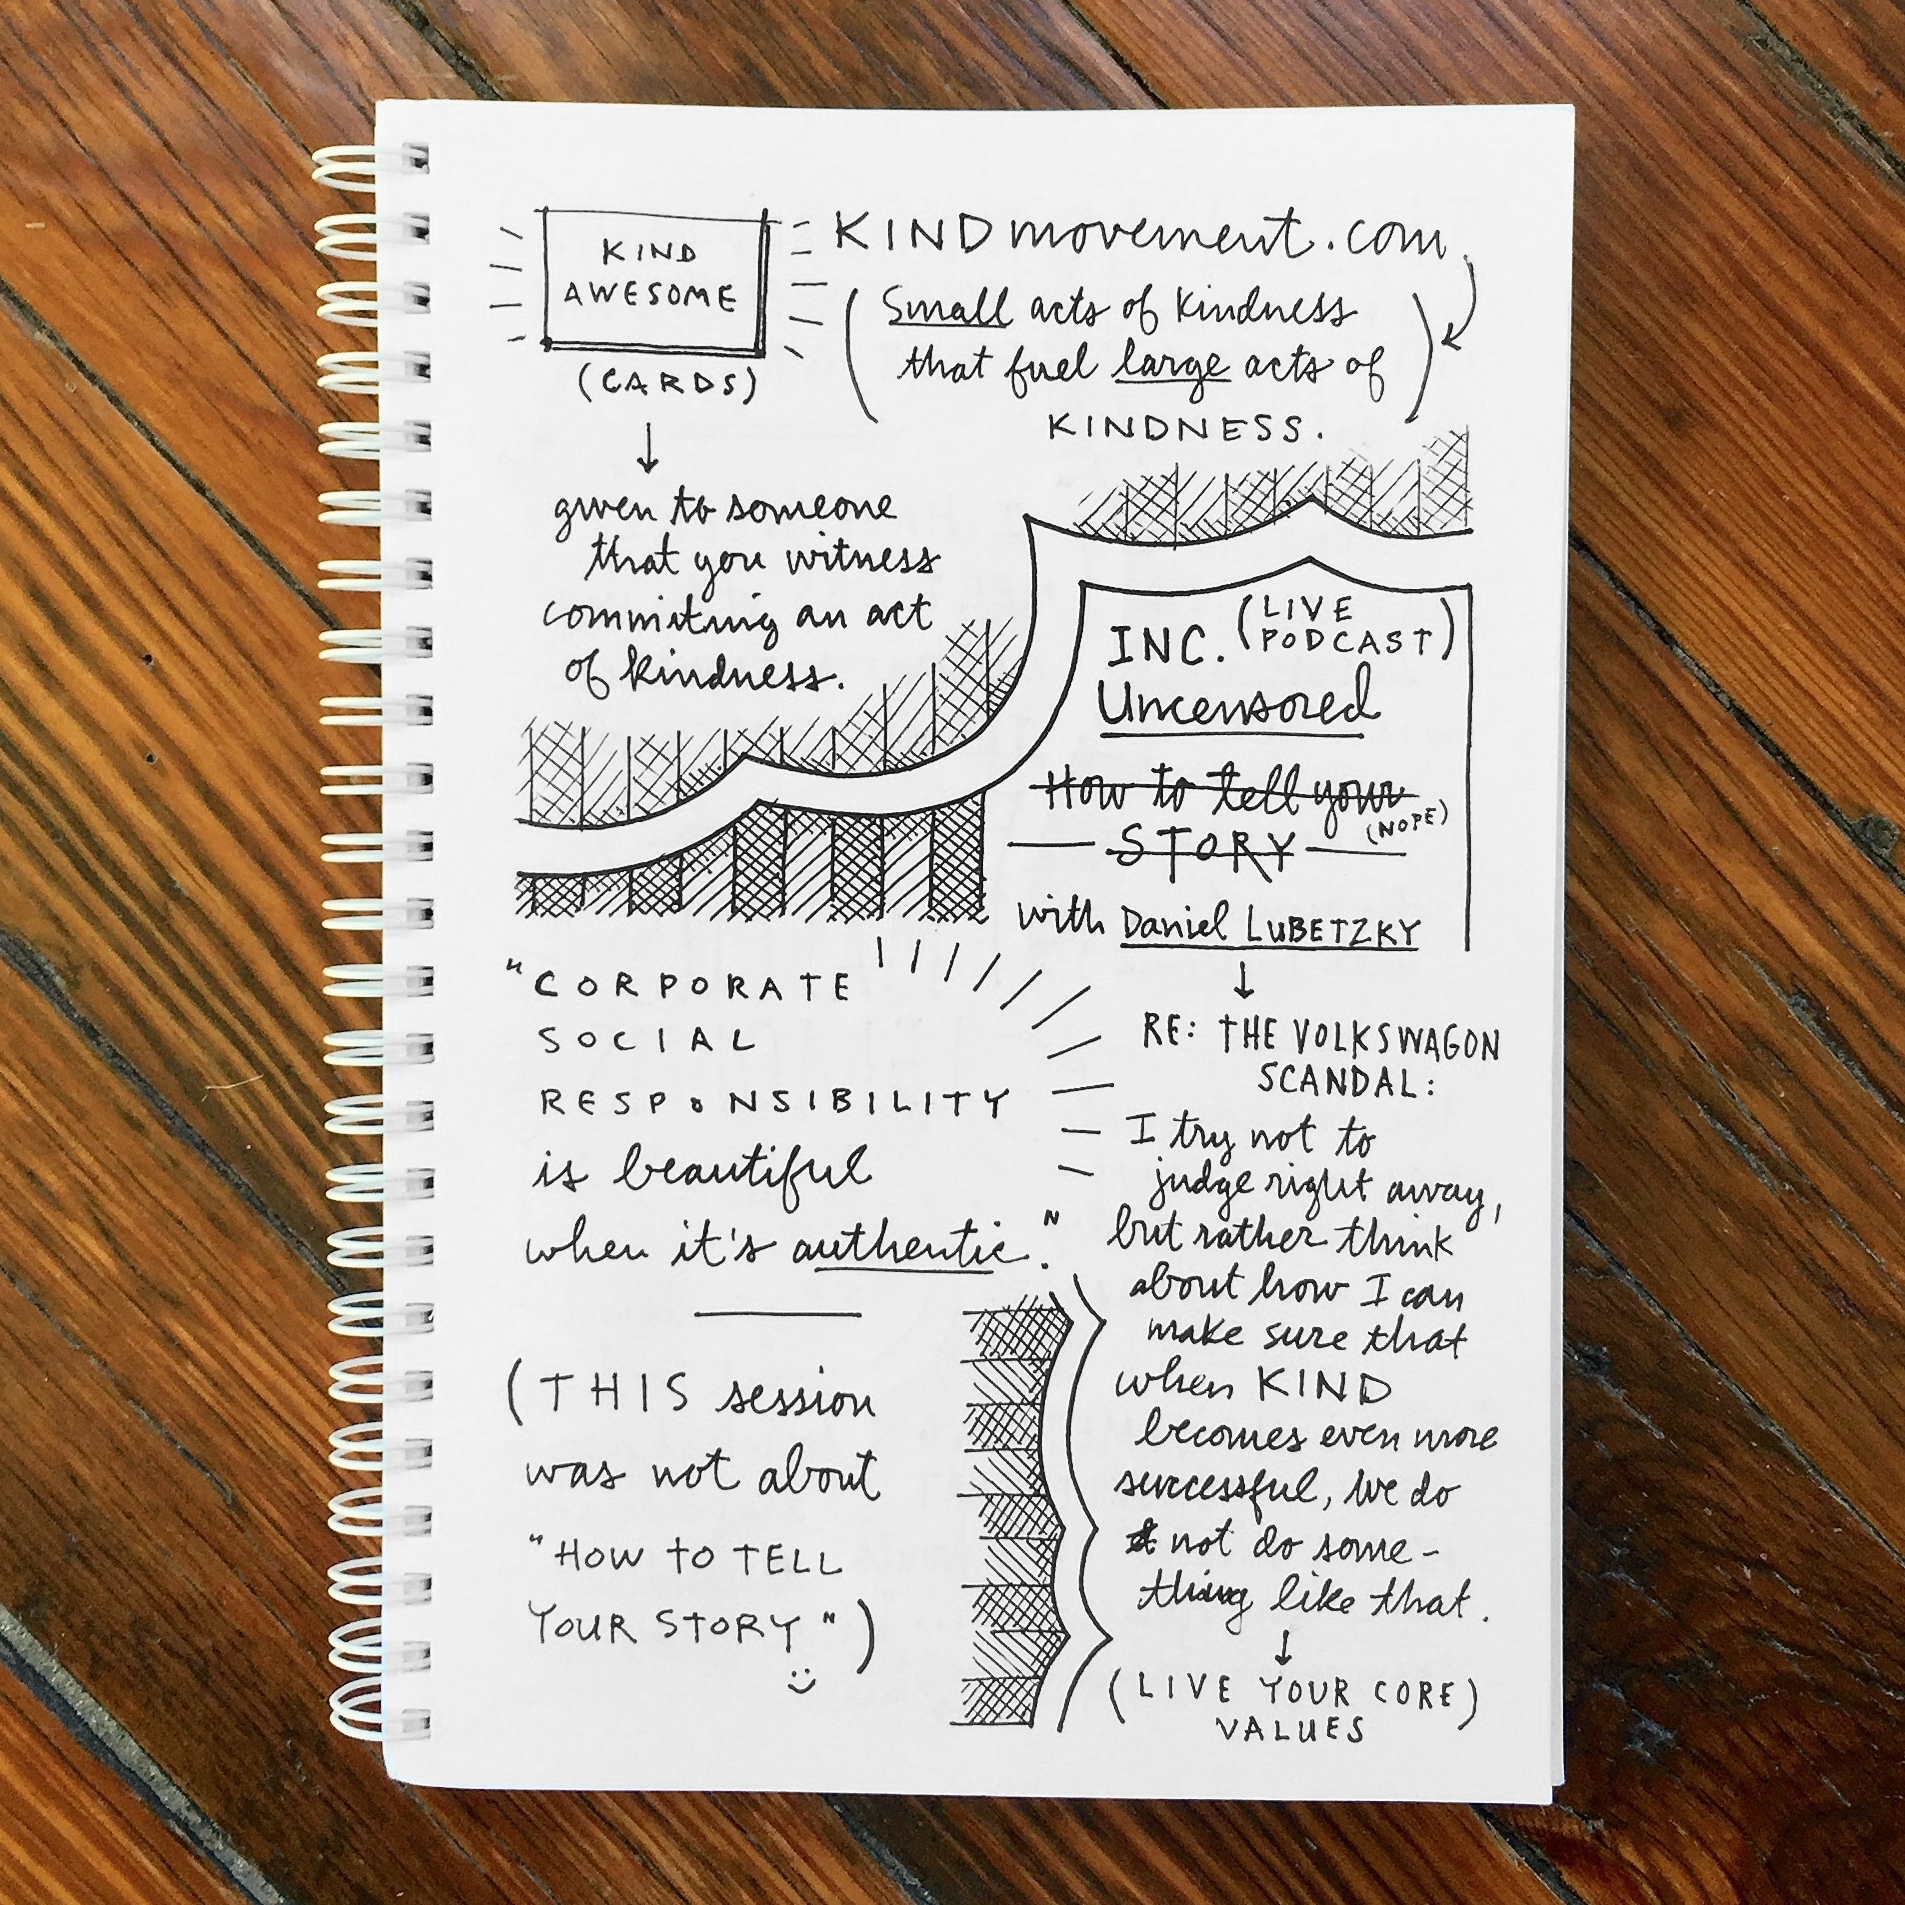 KIND
AWESOME
(CARDS)
given to someone
that you witness
commiting an act
of kindness.
KINDmovement.com
(Small acts of kindness
that fuel large acts of
KINDNESS.)
INC. (LIVE
PODCAST)
Uncensored
How to tell your
STORY (NOPE)
with Daniel LUBETZKY
"CORPORATE
SOCIAL
RESPONSIBILITY
is beautiful
when it's authentic."
(THIS session
was not about
"HOW TO TELL
YOUR STORY")
RE: THE VOLKSWAGON
SCANDAL:
I try not to
judge right away,
but rather think
about how I can
make sure that
when KIND
becomes even more
successful, we do
not do some-
thing like that.
(LIVE YOUR CORE)
VALUES